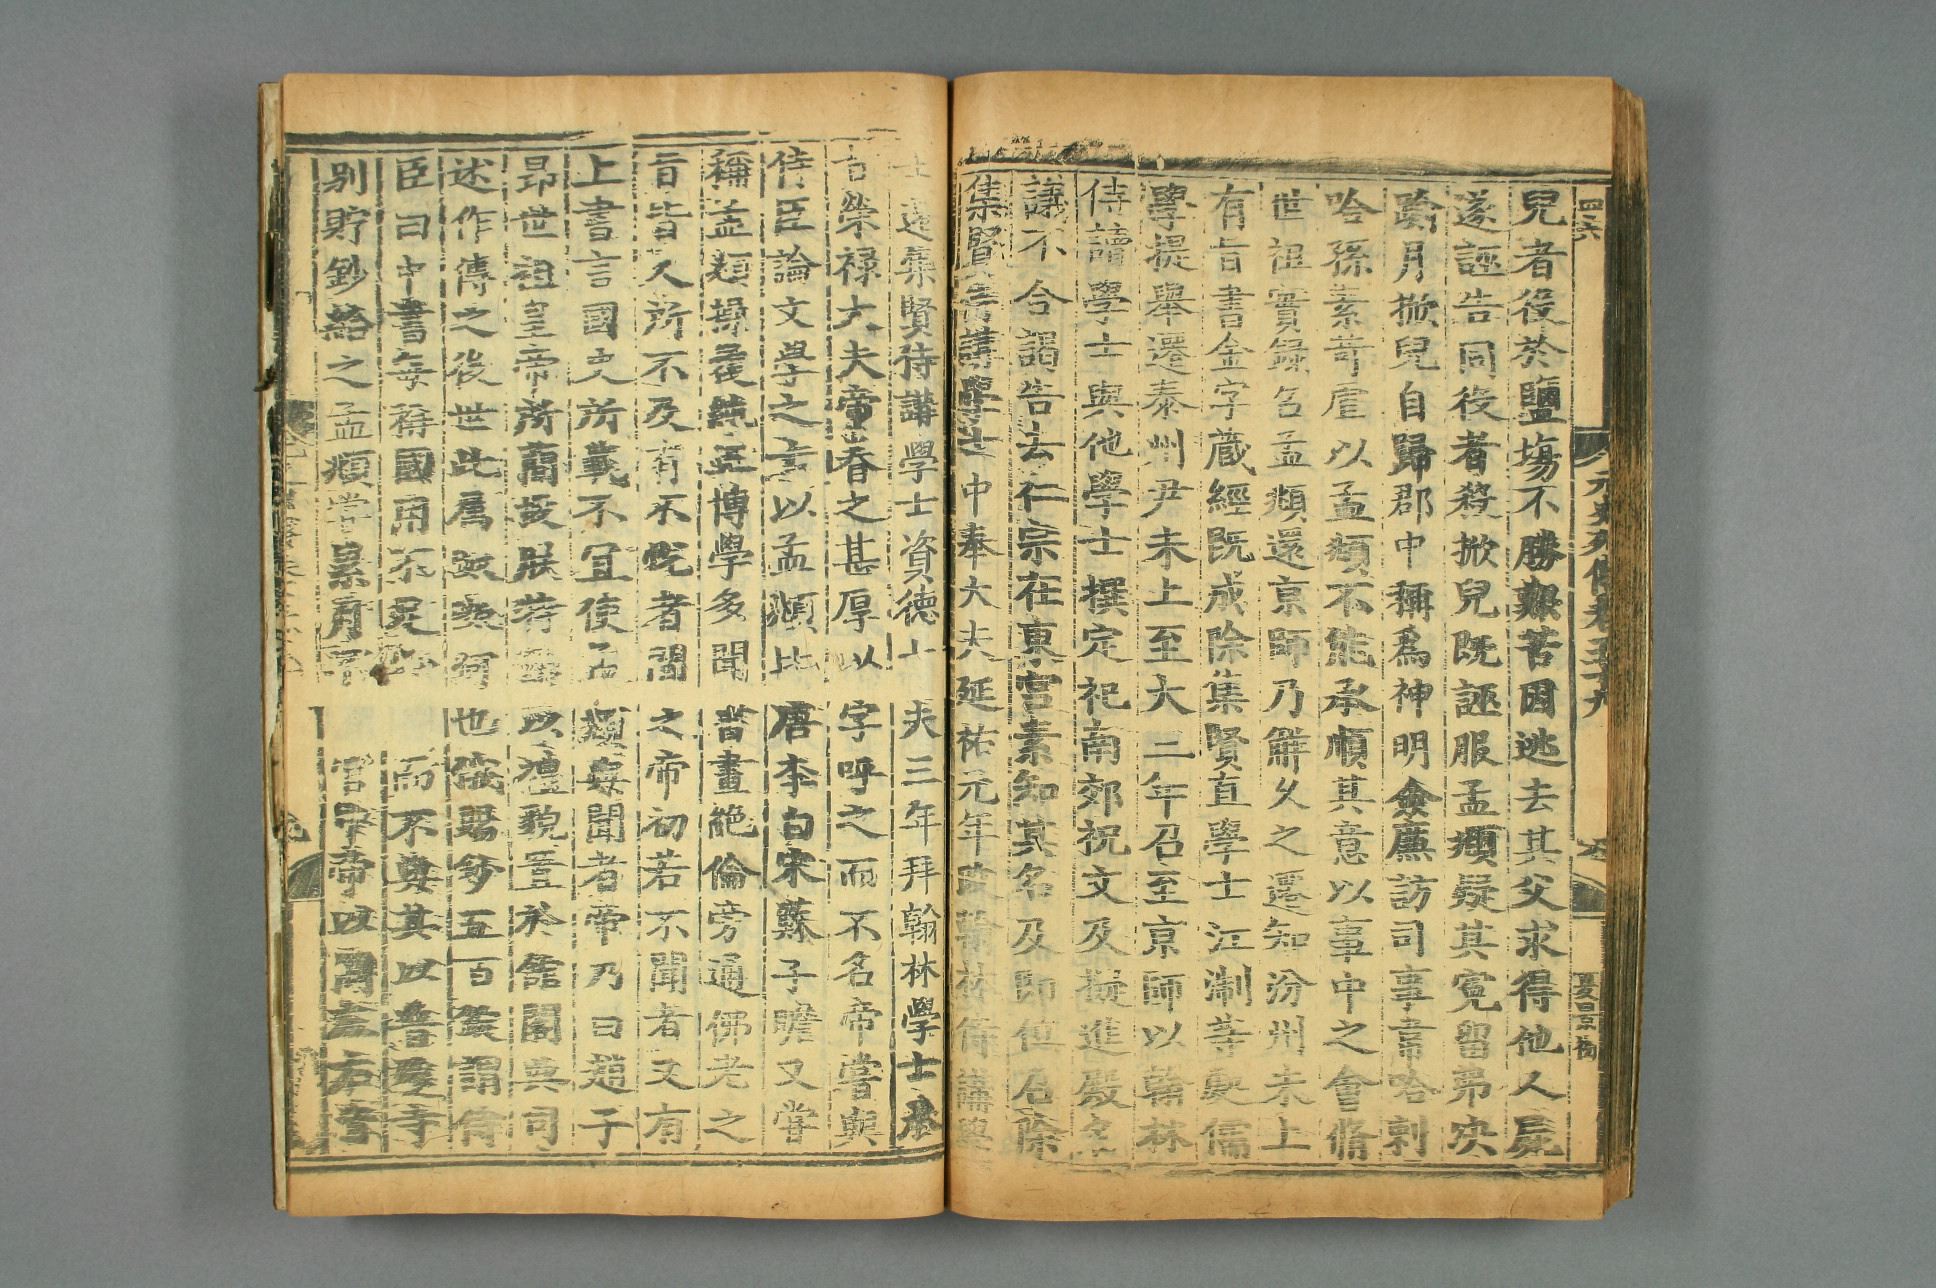 四六
元史列傳卷五十九
夏白京初
兒者役於鹽塲不勝艱苦因逃去其父求得他人屍
遂誣告同役者殺掀兒既誣服孟頫疑其寃留弗决
踰月掀兒自歸郡中稱爲神明僉廉訪司事韋哈剌
哈孫素苛虐以孟頫不能承順其意以事中之會脩
世祖實録名孟頫還京師乃觧久之遷知汾州未上
有旨書金字藏經既成除集賢直學士江浙等處儒
學提舉遷泰州尹未上至大二年召至京師以翰林
侍讀學士與他學士撰定祀南郊祝文及擬進殿名
議不合謁告去仁宗在東宮素知其名及即位召除
集賢侍講學士中奉大夫延祐元年改翰林侍講學
士遷集賢侍講學士資德大夫三年拜翰林學士承
旨榮禄大夫帝眷之甚厚以字呼之而不名帝嘗與
侍臣論文學之士以孟頫比唐李白宋蘇子瞻又嘗
稱孟頫操履純正博學多聞書畫絶倫旁通佛老之
旨皆人所不及有不恱者間之帝初若不聞者又有
上書言國史所載不宜使孟頫與聞者帝乃曰趙子
昂世祖皇帝所簡拔朕特優以禮貌置於舘閣典司
述作傳之後世此属呶呶何也俄賜鈔五百錠謂侍
臣曰中書每稱國用不足必而不與其以普慶寺
别貯鈔給之孟頫嘗累月不至宮中帝以問左右